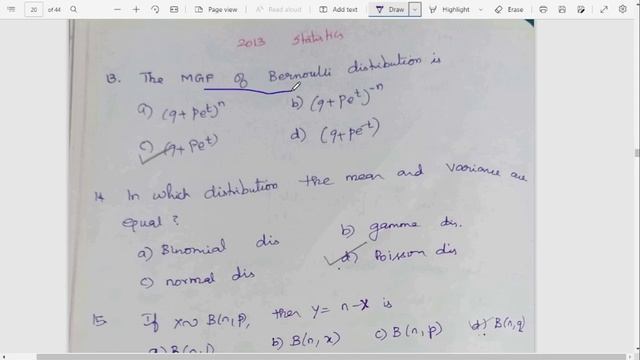 20 of 44
Page view
Read aloud
Add text
Draw
Highlight
Erase
2013 Statistics
13. The MGF of Bernoulli distribution is
a) (q+pe^t)^n b) (q+pe^t)^-n
c) (q+pe^t) d) (q+pe^-t)
14. In which distribution the mean and variance are
equal?
a) Binomial dis b) gamma dis.
c) normal dis d) Poisson dis
15. If x~B(n,p), then y = n-x is
b) B(n,x) c) B(n,p) d) B(n,q)